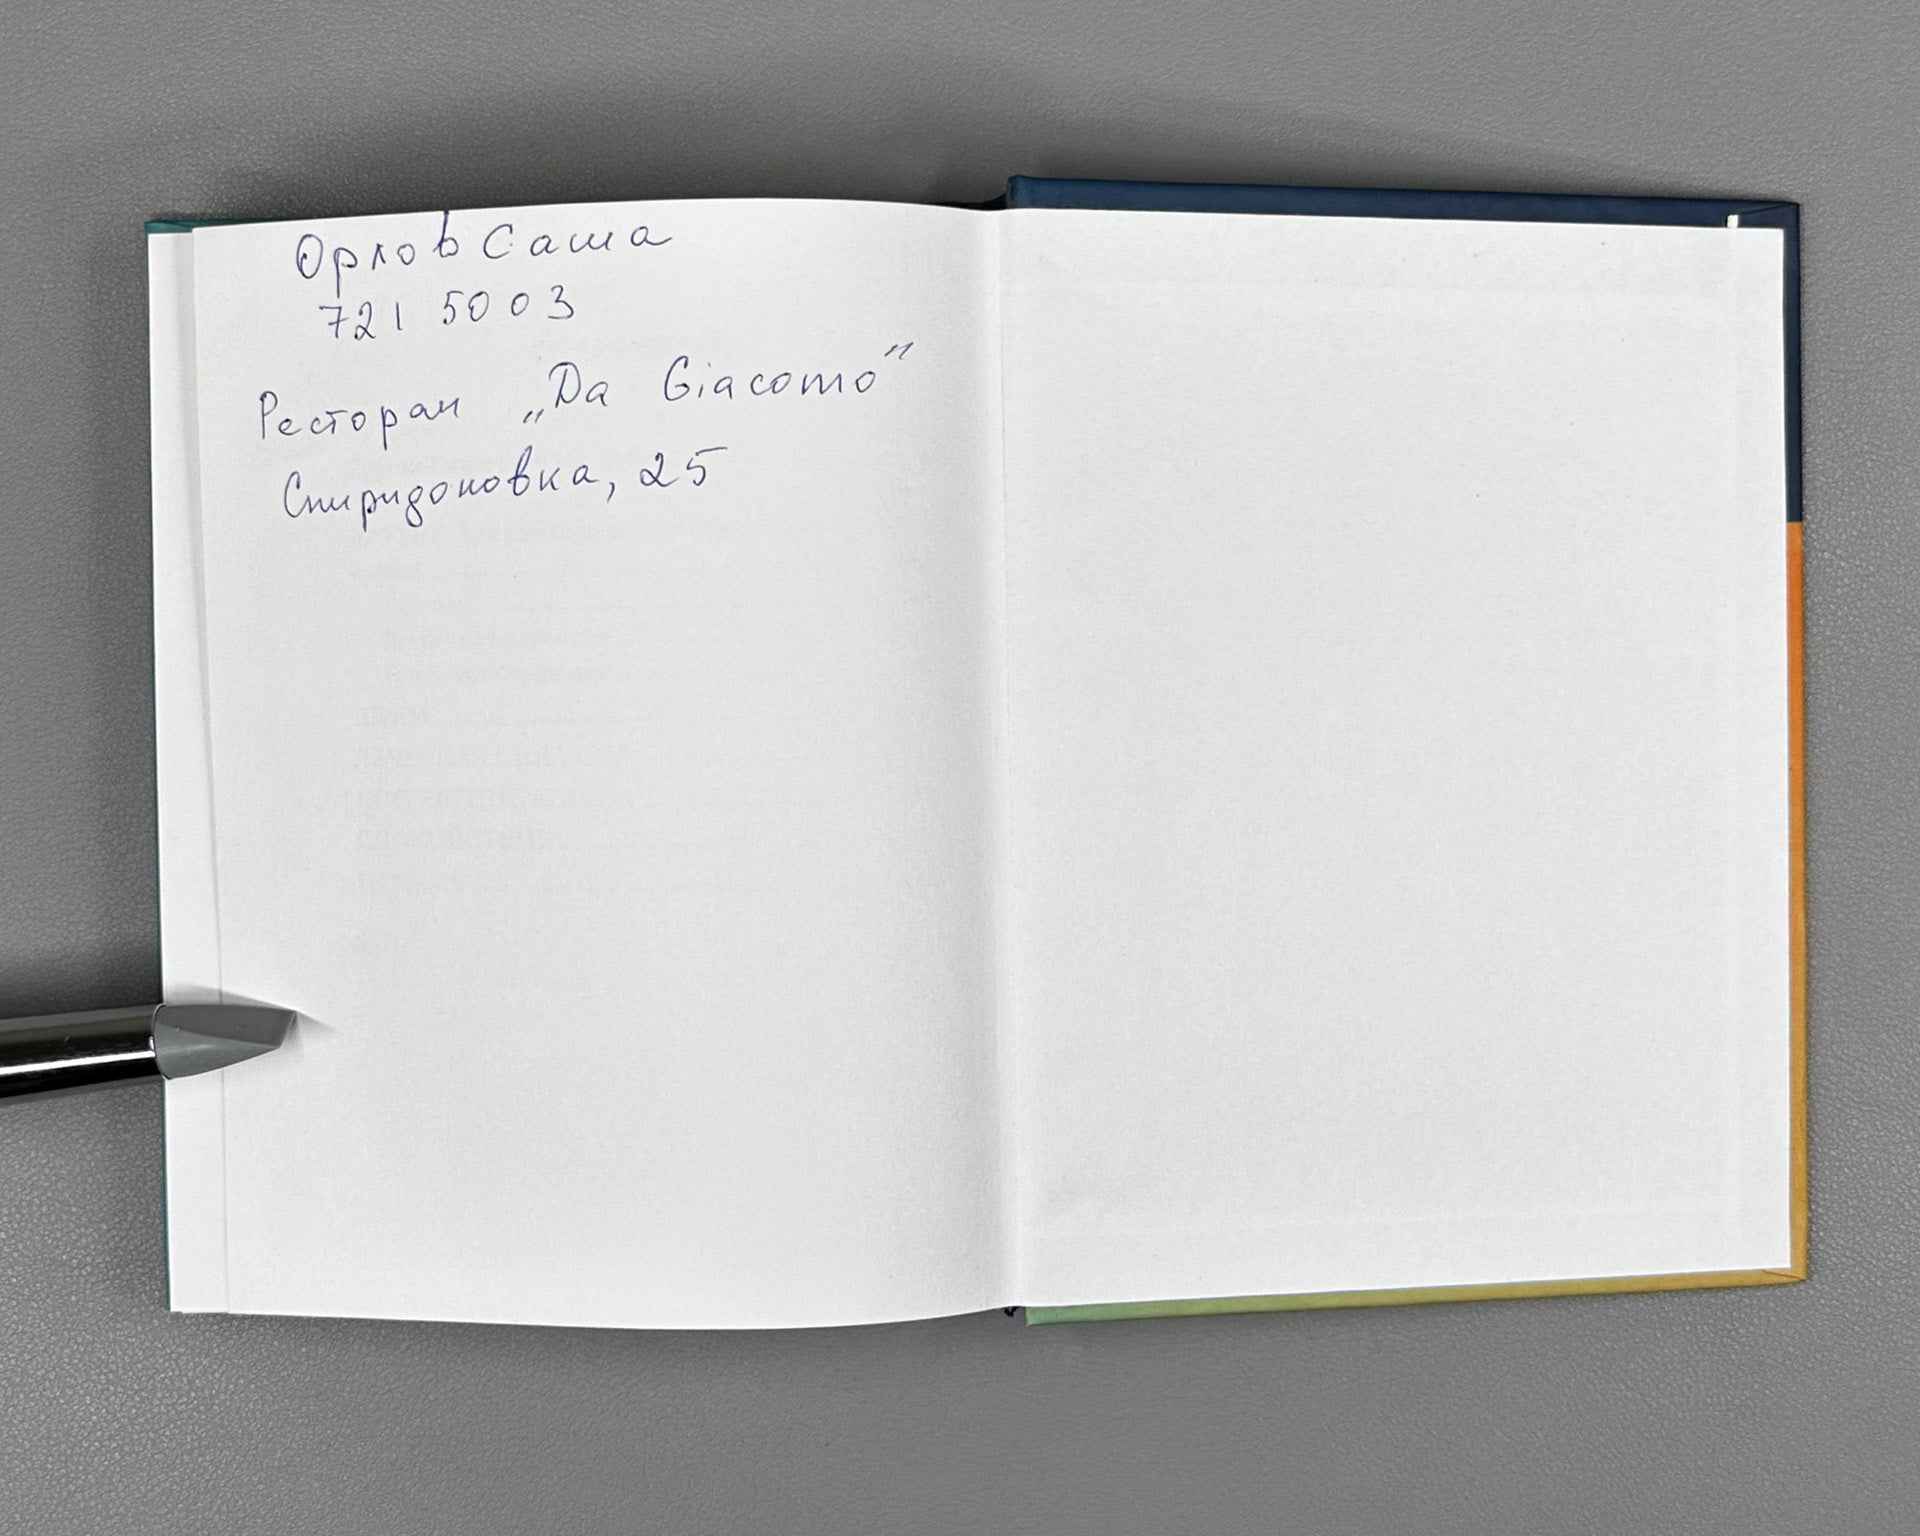 Орлов Саша
721 5003
Ресторан „Da Giacomo"
Спиридоновка, 25